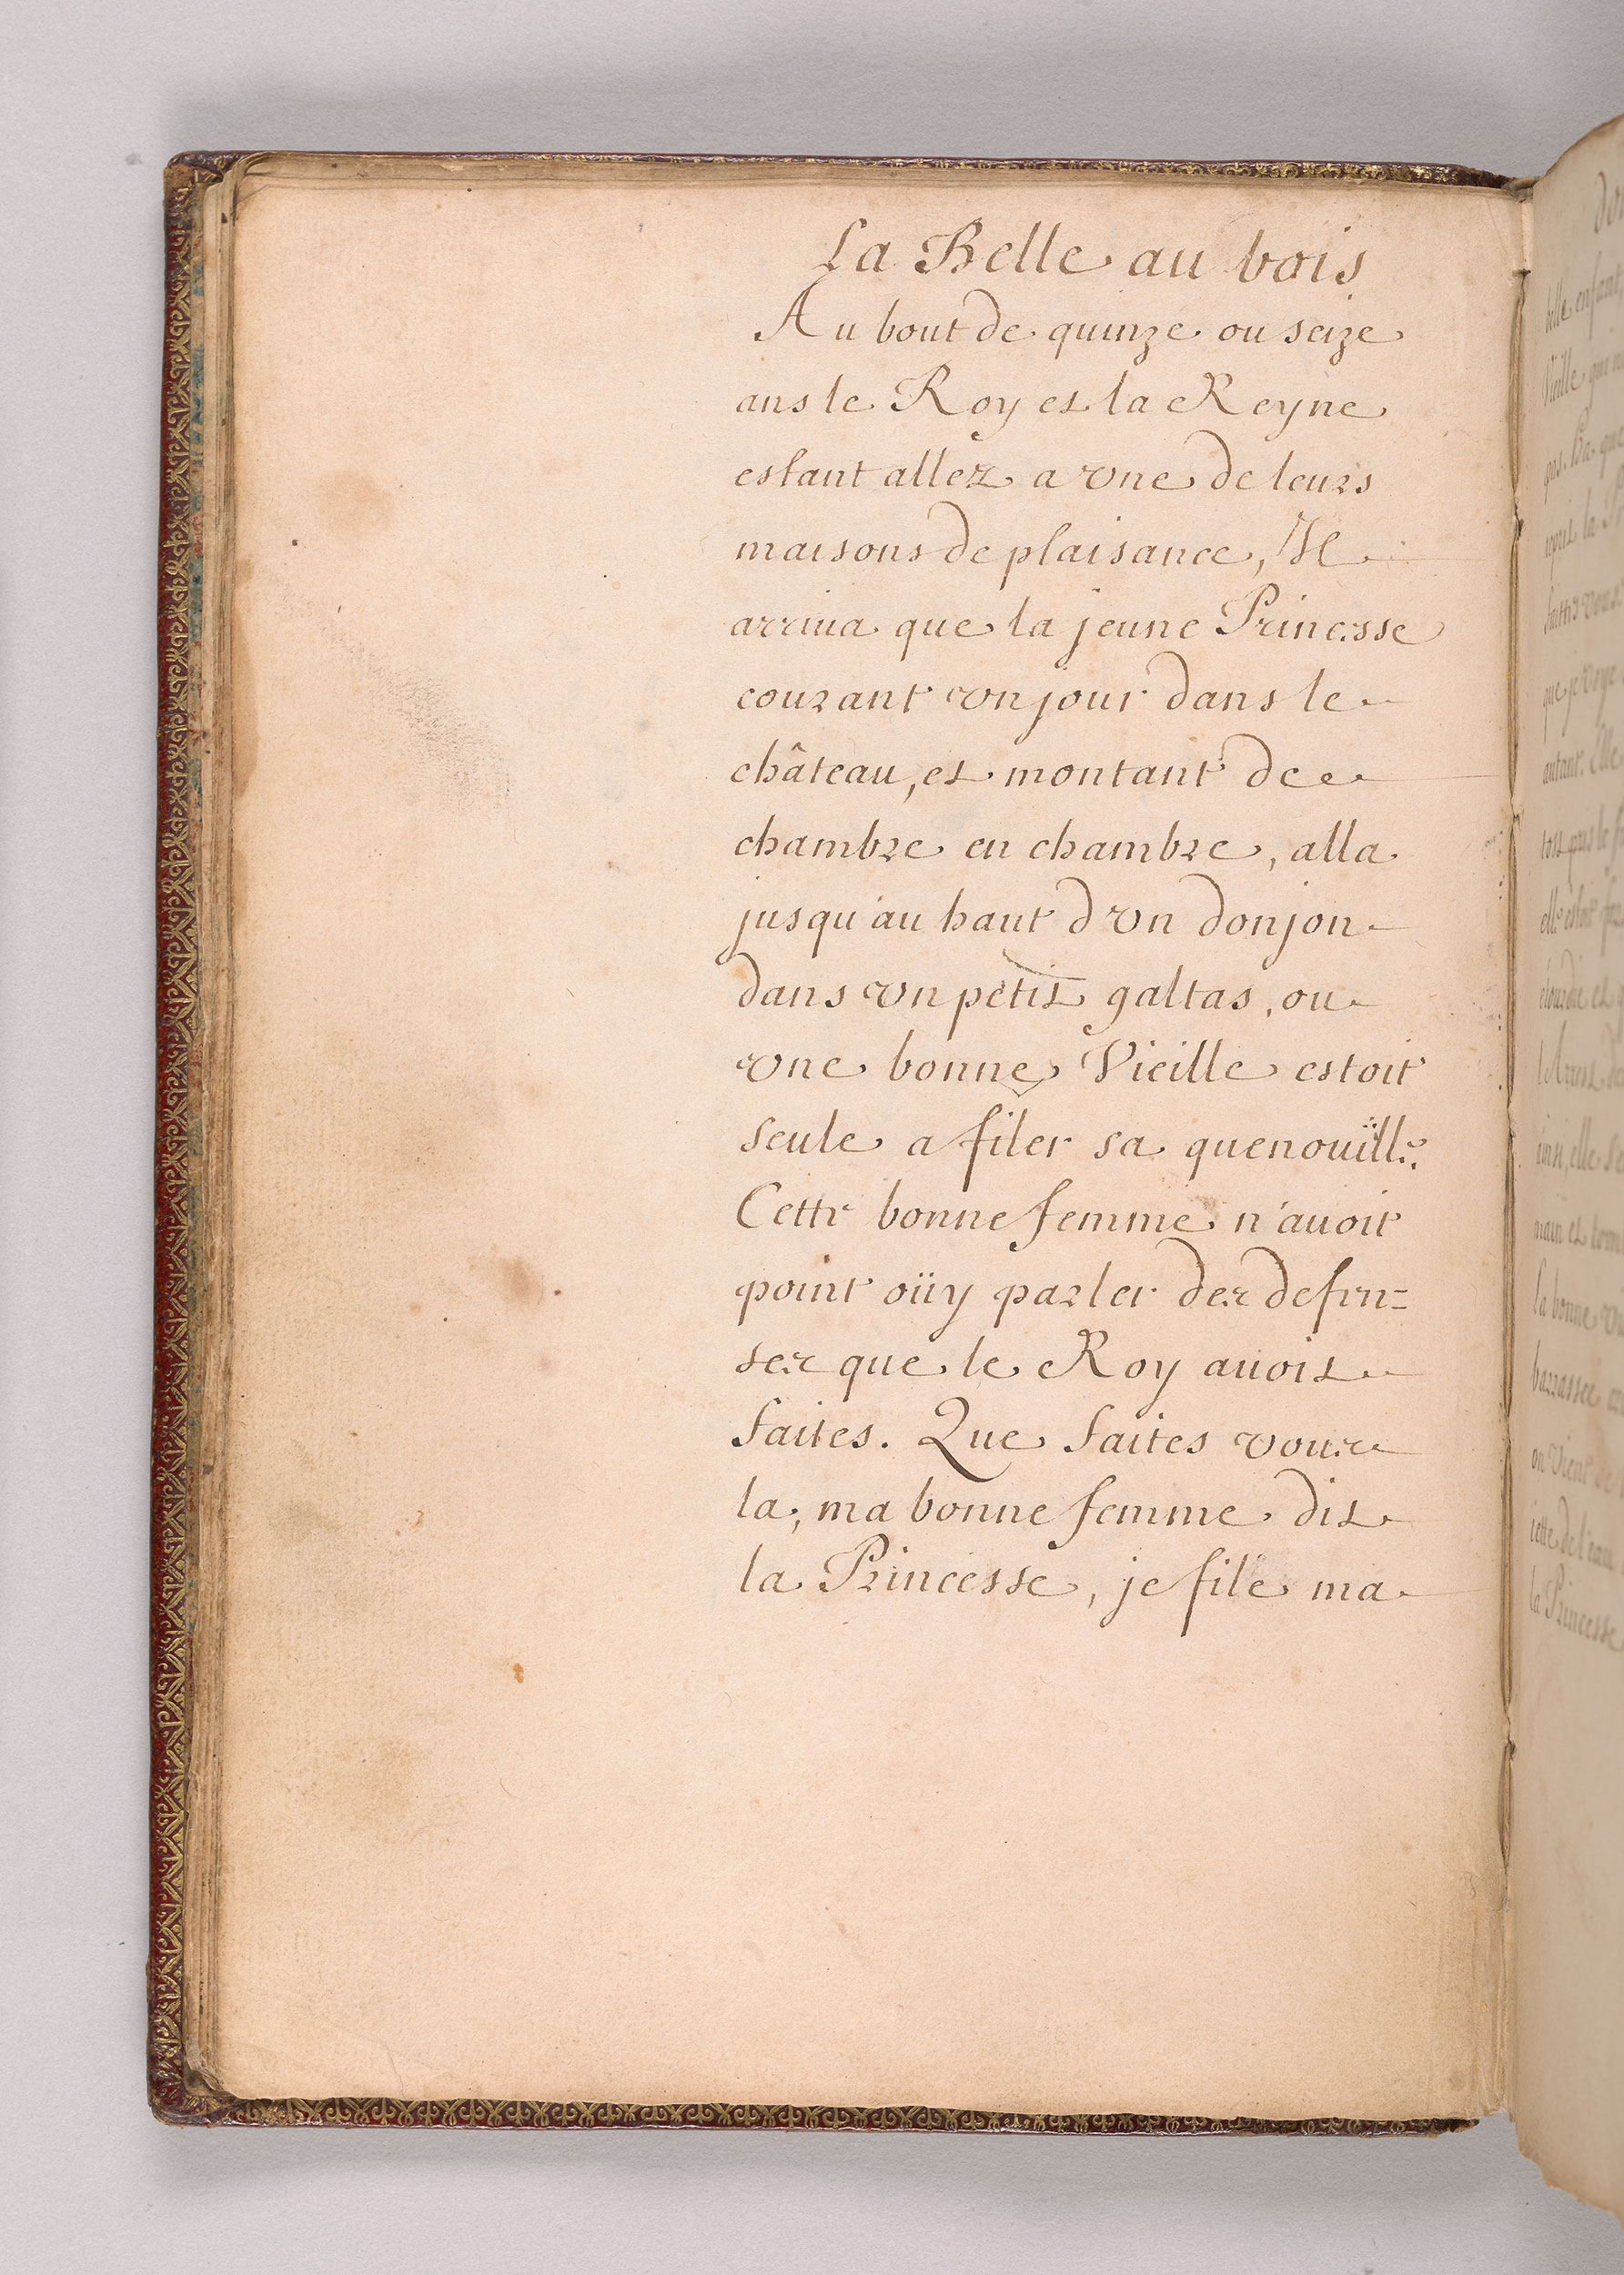 La Belle au bois
Au bout de quinze ou seize
ans le Roy et la Reyne
estant allez a vne de leurs
maisons de plaisance, Il
arriua que la jeune Princesse
courant vn jour dans le
château, et montant de
chambre en chambre, alla
jusqu'au haut d'vn donjon
dans vn petit galtas, ou
vne bonne Vieille estoit
seule a filer sa quenoüille.
Cette bonne femme n'auoit
point oüy parler des defen=
ses que le Roy auoit
faites. Que faites vous
la, ma bonne femme dit
la Princesse, je file ma
belle enfant
Vieille que
pas. Ha que
reprit la
faittes vous
que je voye
autant. Elle
tost pris le
elle estoit
étourdie et
l'Arrest
ainsi, elle
main et
la bonne
barrassee
on vient de
jette de l'eau
la Princesse